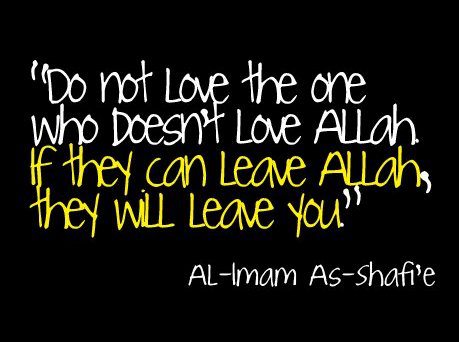 "Do not Love the one
who Doesn't Love ALLah.
If they can Leave ALLah,
they will Leave you."
AL-Imam As-Shafi'e